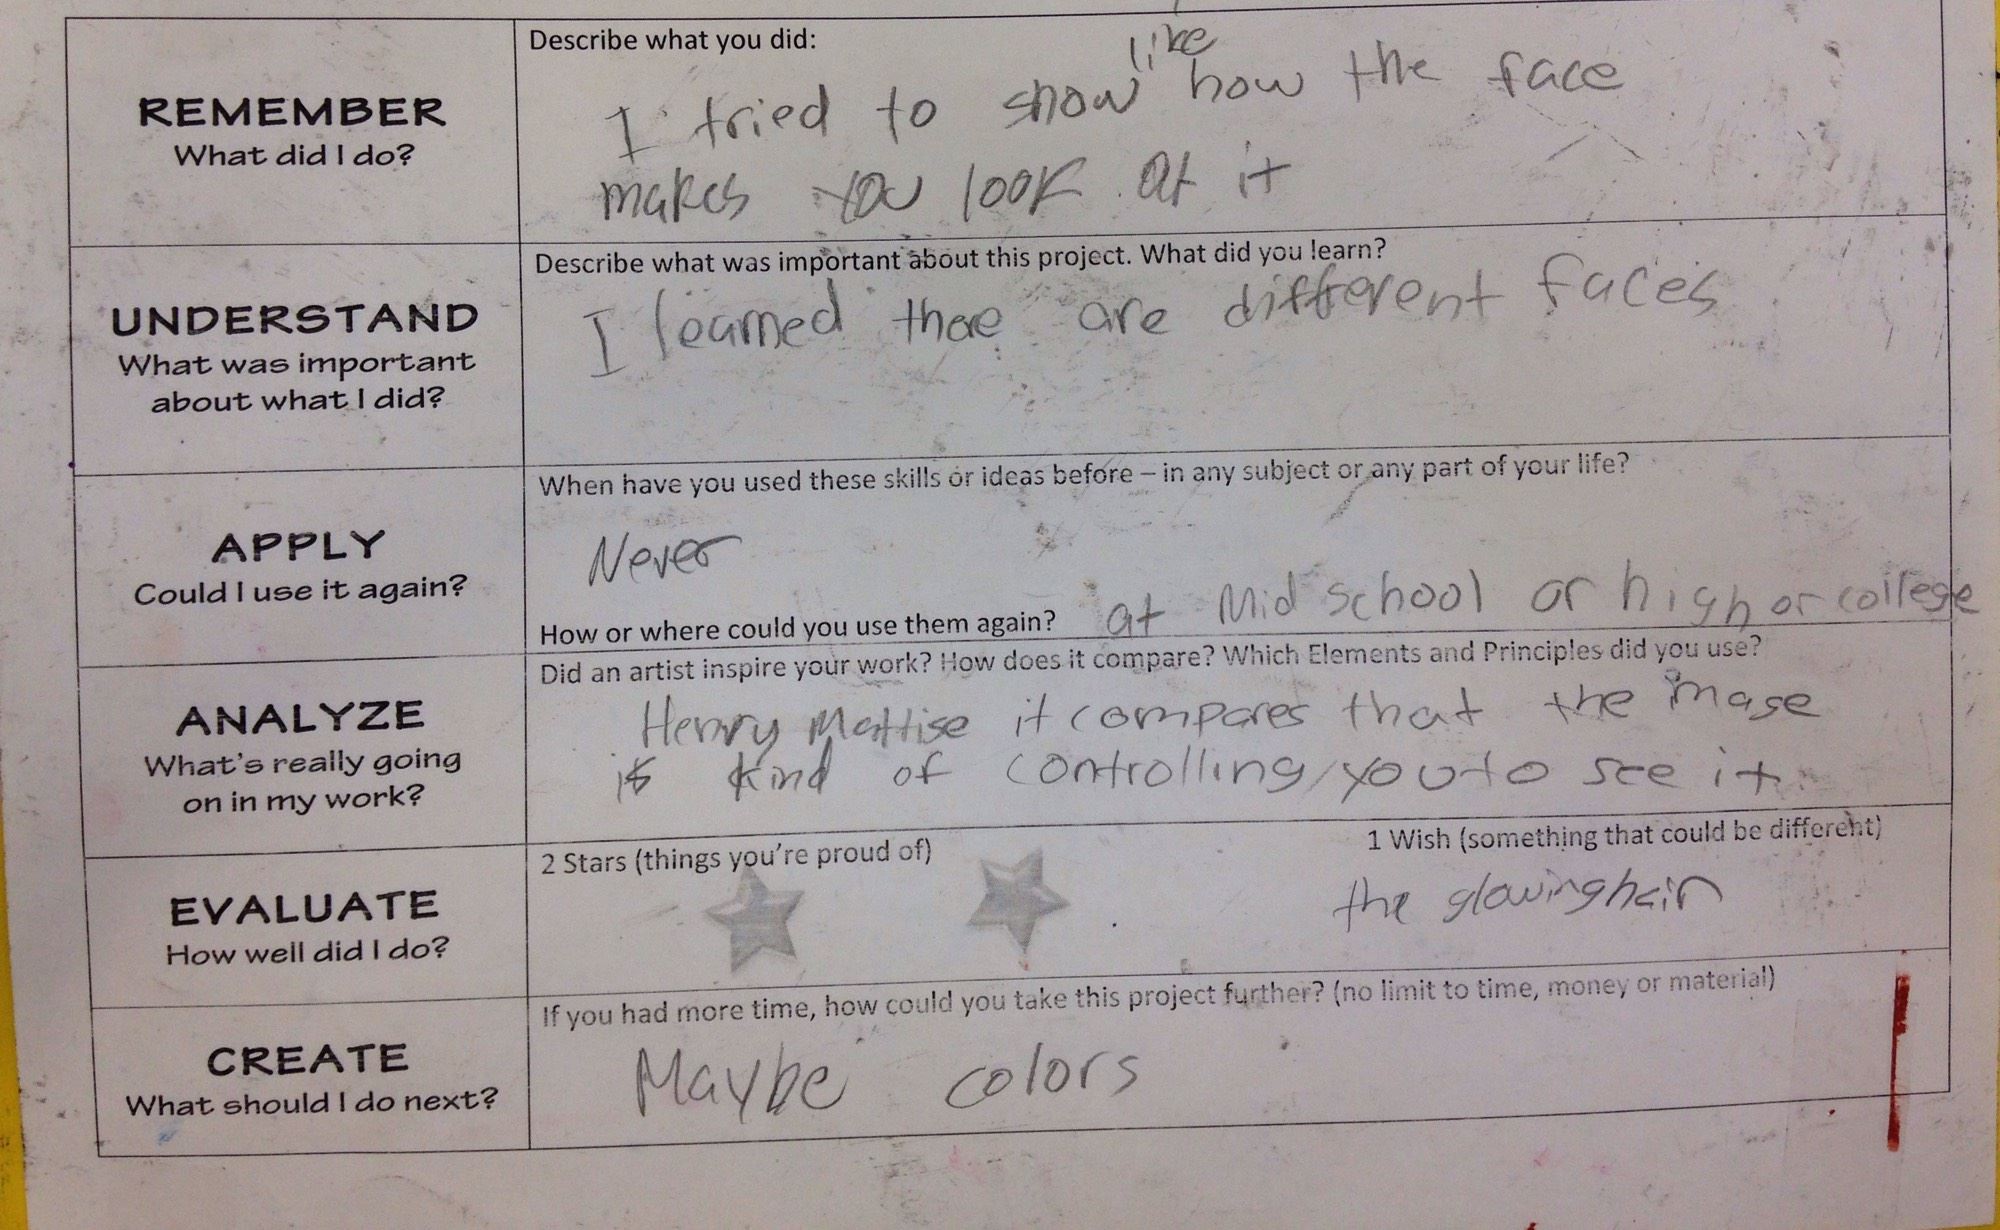 REMEMBER
What did I do?
Describe what you did:
like
I tried to show how the face
makes you look at it
UNDERSTAND
What was important
about what I did?
Describe what was important about this project. What did you learn?
I learned there are different faces
APPLY
Could I use it again?
When have you used these skills or ideas before – in any subject or any part of your life?
Never
How or where could you use them again? at Mid school or high or college
ANALYZE
What's really going
on in my work?
Did an artist inspire your work? How does it compare? Which Elements and Principles did you use?
Henry Mattise it compares that the image
is kind of controlling you to see it.
EVALUATE
How well did I do?
2 Stars (things you're proud of)
1 Wish (something that could be different)
the glowing hair
CREATE
What should I do next?
If you had more time, how could you take this project further? (no limit to time, money or material)
Maybe colors